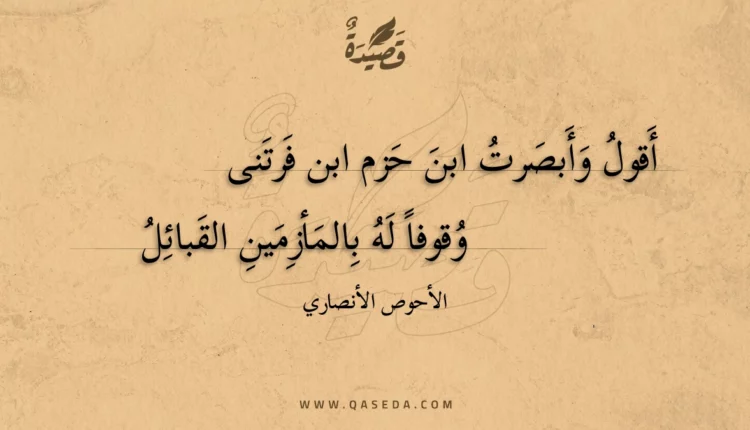 قَصِيْدَةٌ
أَقولُ وَأَبصَرتُ ابنَ حَزم ابن فَرتَنى
وُقوفاً لَهُ بِالمَأزِمَينِ القَبائِلُ
الأحوص الأنصاري
WWW.QASEDA.COM